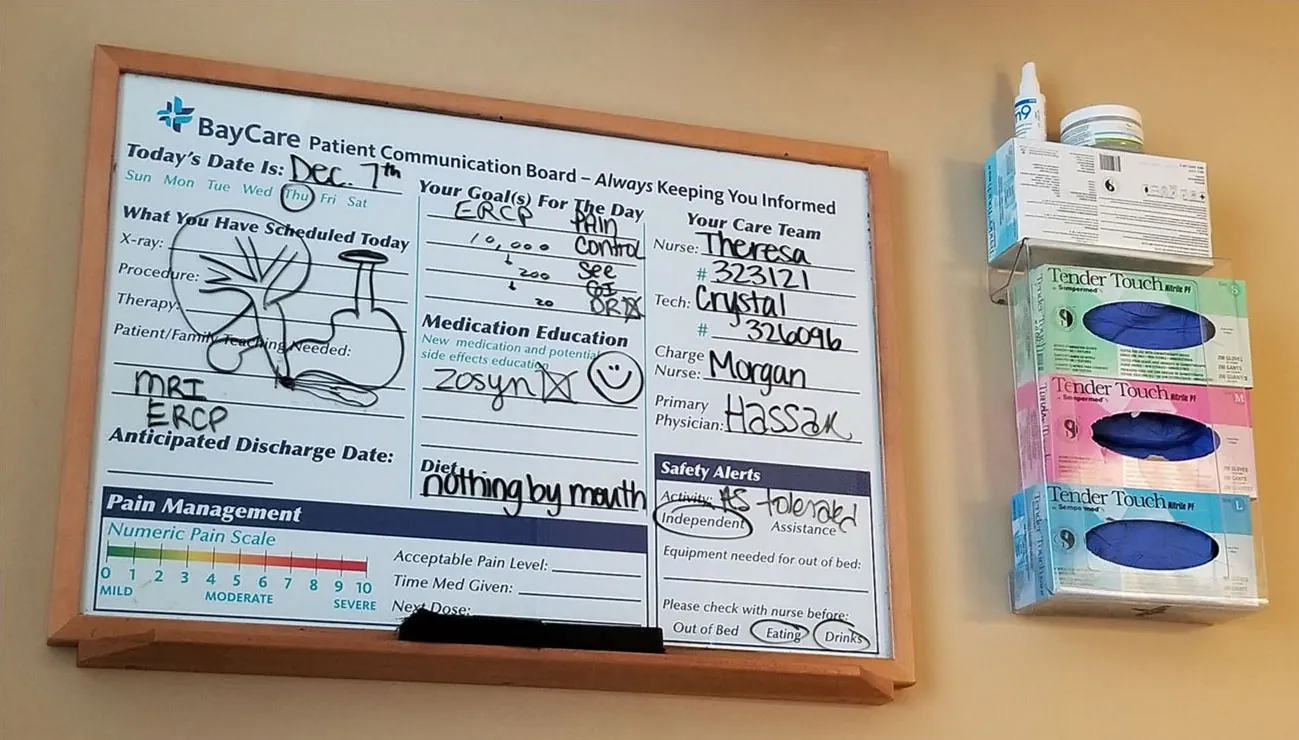 BayCare Patient Communication Board – Always Keeping You Informed
Today's Date Is: Dec. 7th
Sun Mon Tue Wed Thu Fri Sat
What You Have Scheduled Today
X-ray:
Procedure:
Therapy:
Patient/Family Teaching Needed:
MRI
ERCP
Anticipated Discharge Date:
Your Goal(s) For The Day
ERCP PAIN
10,000 Control
200 See
GI
20 DR
Medication Education
New medication and potential
side effects education
Zosyn
Diet
nothing by mouth
Your Care Team
Nurse: Theresa
# 323121
Tech: Crystal
# 326096
Charge
Nurse: Morgan
Primary
Physician: Hassan
Safety Alerts
Activity: AS tolerated
Independent Assistance
Equipment needed for out of bed:
Please check with nurse before:
Out of Bed Eating Drinks
Pain Management
Numeric Pain Scale
0 1 2 3 4 5 6 7 8 9 10
MILD MODERATE SEVERE
Acceptable Pain Level:
Time Med Given:
Next Dose:
Tender Touch Nitrile PF
by Sempermed
S
Tender Touch Nitrile PF
by Sempermed
M
Tender Touch Nitrile PF
by Sempermed
L